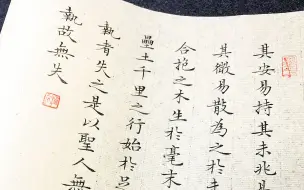 其安易持其未兆易
其微易散為之於未
合抱之木生於毫末
壘土千里之行始於足
執者失之是以聖人無
執故無失